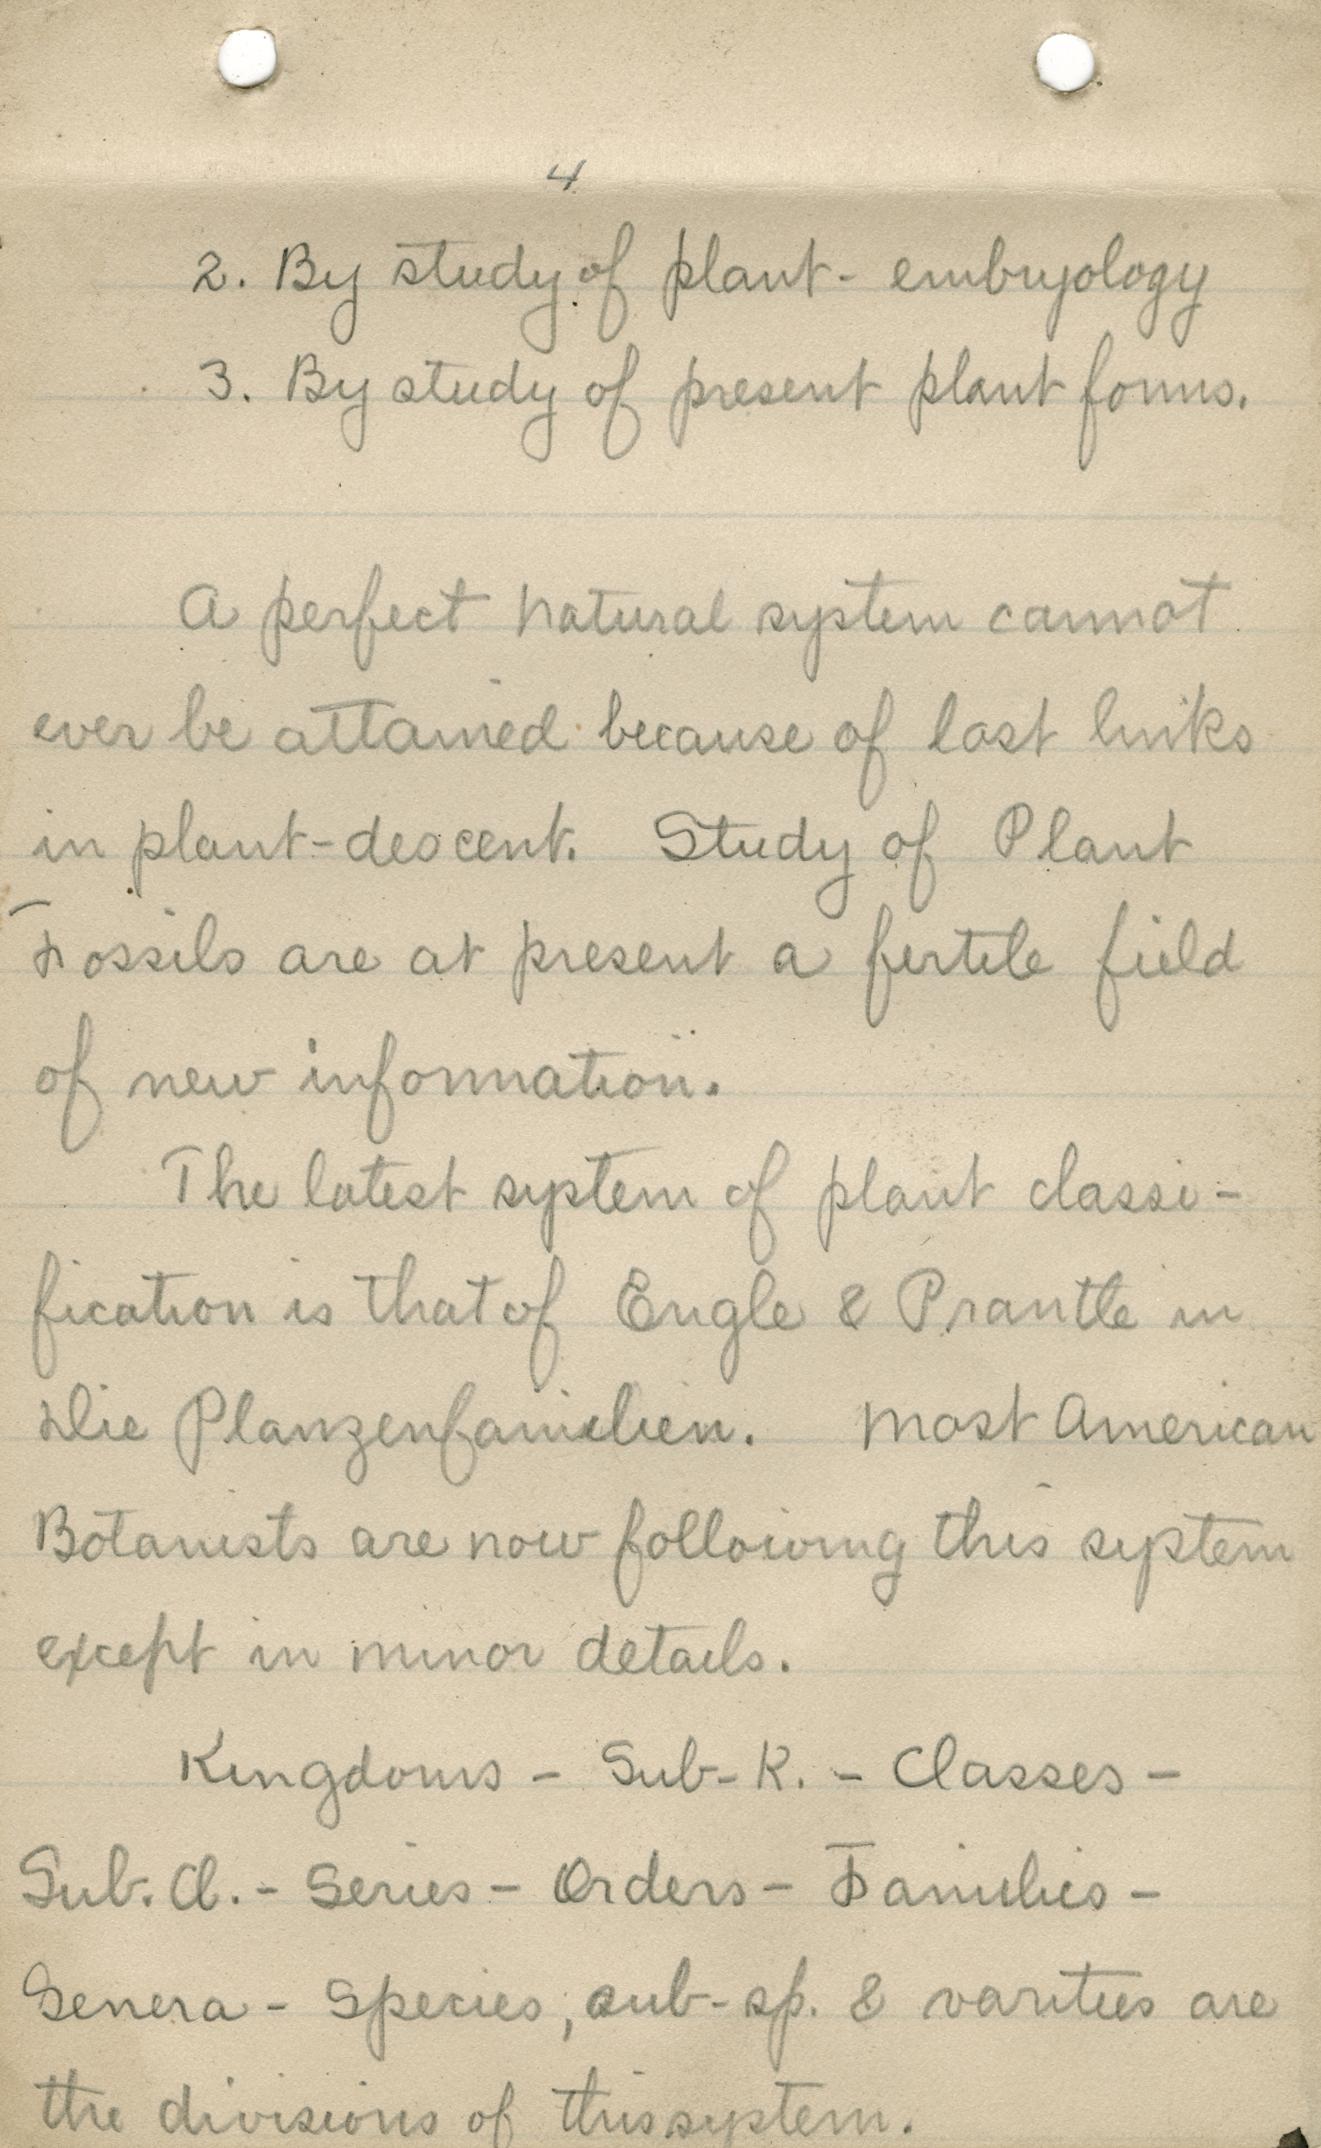 4
2. By study of plant - embryology
3. By study of present plant forms.
A perfect natural system cannot
ever be attained because of lost links
in plant-descent. Study of Plant
Fossils are at present a fertile field
of new information.
The latest system of plant classi-
fication is that of Engle & Prantle in
Die Planzenfamilien. Most American
Botanists are now following this system
except in minor details.
Kingdoms - Sub-K. - Classes -
Sub. Cl. - Series - Orders - Families -
Genera - Species, sub-sp. & varities are
the divisions of this system.